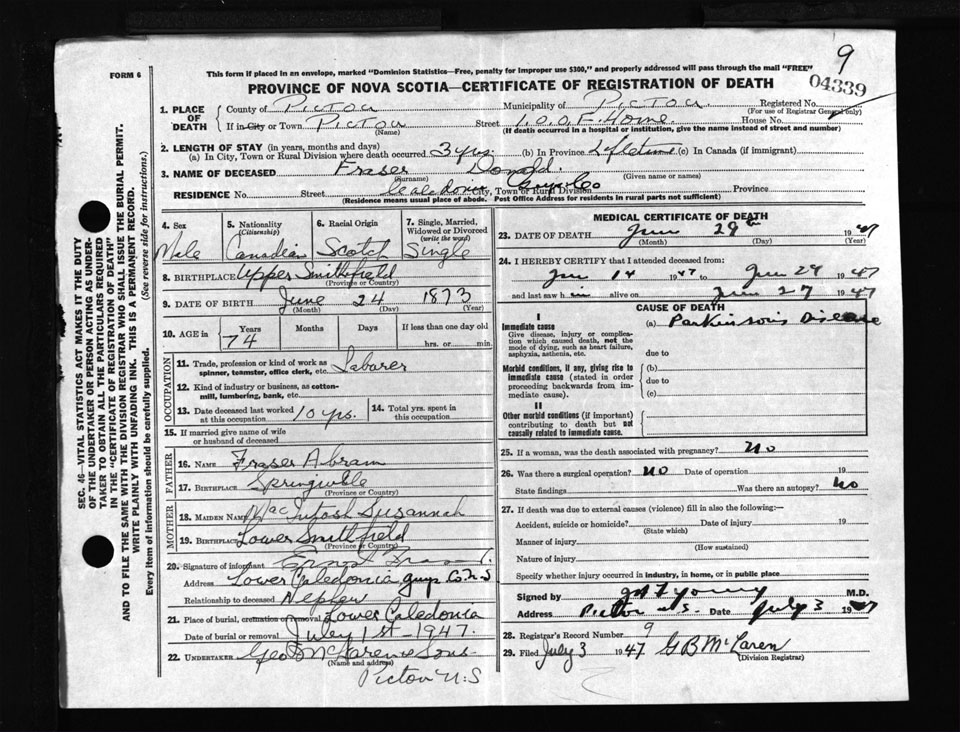 9
FORM 6
This form if placed in an envelope, marked "Dominion Statistics—Free, penalty for improper use $300," and properly addressed will pass through the mail "FREE"
04339
PROVINCE OF NOVA SCOTIA—CERTIFICATE OF REGISTRATION OF DEATH
SEC. 46—VITAL STATISTICS ACT MAKES IT THE DUTY
OF THE UNDERTAKER OR PERSON ACTING AS UNDER-
TAKER TO OBTAIN ALL THE PARTICULARS REQUIRED
IN THE "CERTIFICATE OF REGISTRATION OF DEATH"
AND TO FILE THE SAME WITH THE DIVISION REGISTRAR WHO SHALL ISSUE THE BURIAL PERMIT.
WRITE PLAINLY WITH UNFADING INK. THIS IS A PERMANENT RECORD.
Every item of information should be carefully supplied. (See reverse side for instructions.)
1. PLACE OF DEATH
County of Pictou Municipality of Pictou Registered No.
(For use of Registrar General only)
If in City or Town Pictou Street I.O.O.F. Home. House No.
(Name) (If death occurred in a hospital or institution, give the name instead of street and number)
2. LENGTH OF STAY (in years, months and days)
(a) In City, Town or Rural Division where death occurred 3 yrs. (b) In Province Lifetime (c) In Canada (if immigrant)
3. NAME OF DECEASED Fraser Donald.
(Surname) (Given name or names)
RESIDENCE No. Street Caledonia Guys Co City, Town or Rural Division Province
(Residence means usual place of abode. Post Office Address for residents in rural parts not sufficient)
4. Sex
Male
5. Nationality
(Citizenship)
Canadian
6. Racial Origin
Scotch
7. Single, Married, Widowed or Divorced
(write the word)
Single
8. BIRTHPLACE Upper Smithfield
(Province or Country)
9. DATE OF BIRTH June 24 1873
(Month) (Day) (Year)
10. AGE in Years Months Days If less than one day old
74 hrs. or min.
OCCUPATION
11. Trade, profession or kind of work as Laborer
spinner, teamster, office clerk, etc.
12. Kind of industry or business, as cotton-
mill, lumbering, bank, etc.
13. Date deceased last worked at this occupation 10 yrs.
14. Total yrs. spent in this occupation
15. If married give name of wife
or husband of deceased
FATHER
16. NAME Fraser Abram
17. BIRTHPLACE
(Province or Country)
MOTHER
18. MAIDEN NAME MacIntosh Susannah
19. BIRTHPLACE Lower Smithfield
(Province or Country)
20. Signature of informant Ernest
Address Lower Caledonia Guys Co. N.S
Relationship to deceased Nephew
21. Place of burial, cremation or removal Lower Caledonia
Date of burial or removal July 1st - 1947.
22. UNDERTAKER Geo McLaren & Sons.
(Name and address)
Pictou N.S
MEDICAL CERTIFICATE OF DEATH
23. DATE OF DEATH June 29th 1947
(Month) (Day) (Year)
24. I HEREBY CERTIFY that I attended deceased from:
Jun 14 1947 to Jun 29 1947
and last saw him alive on Jun 27 1947
CAUSE OF DEATH
I
Immediate cause (a) Parkinson's Disease
Give disease, injury or complica-
tion which caused death, not the
mode of dying, such as heart failure,
asphyxia, asthenia, etc. due to
Morbid conditions, if any, giving rise to (b)
immediate cause (stated in order due to
proceeding backwards from im-
mediate cause). (c)
II
Other morbid conditions (if important)
contributing to death but not
causally related to immediate cause.
25. If a woman, was the death associated with pregnancy? No
26. Was there a surgical operation? No Date of operation 19
State findings Was there an autopsy? No
27. If death was due to external causes (violence) fill in also the following:—
Accident, suicide or homicide? Date of injury 19
(State which)
Manner of injury
(How sustained)
Nature of injury
Specify whether injury occurred in industry, in home, or in public place
Signed by Young M.D.
Address Pictou N.S. Date July 3 1947
28. Registrar's Record Number 9
29. Filed July 3 1947 G B McLaren
(Division Registrar)